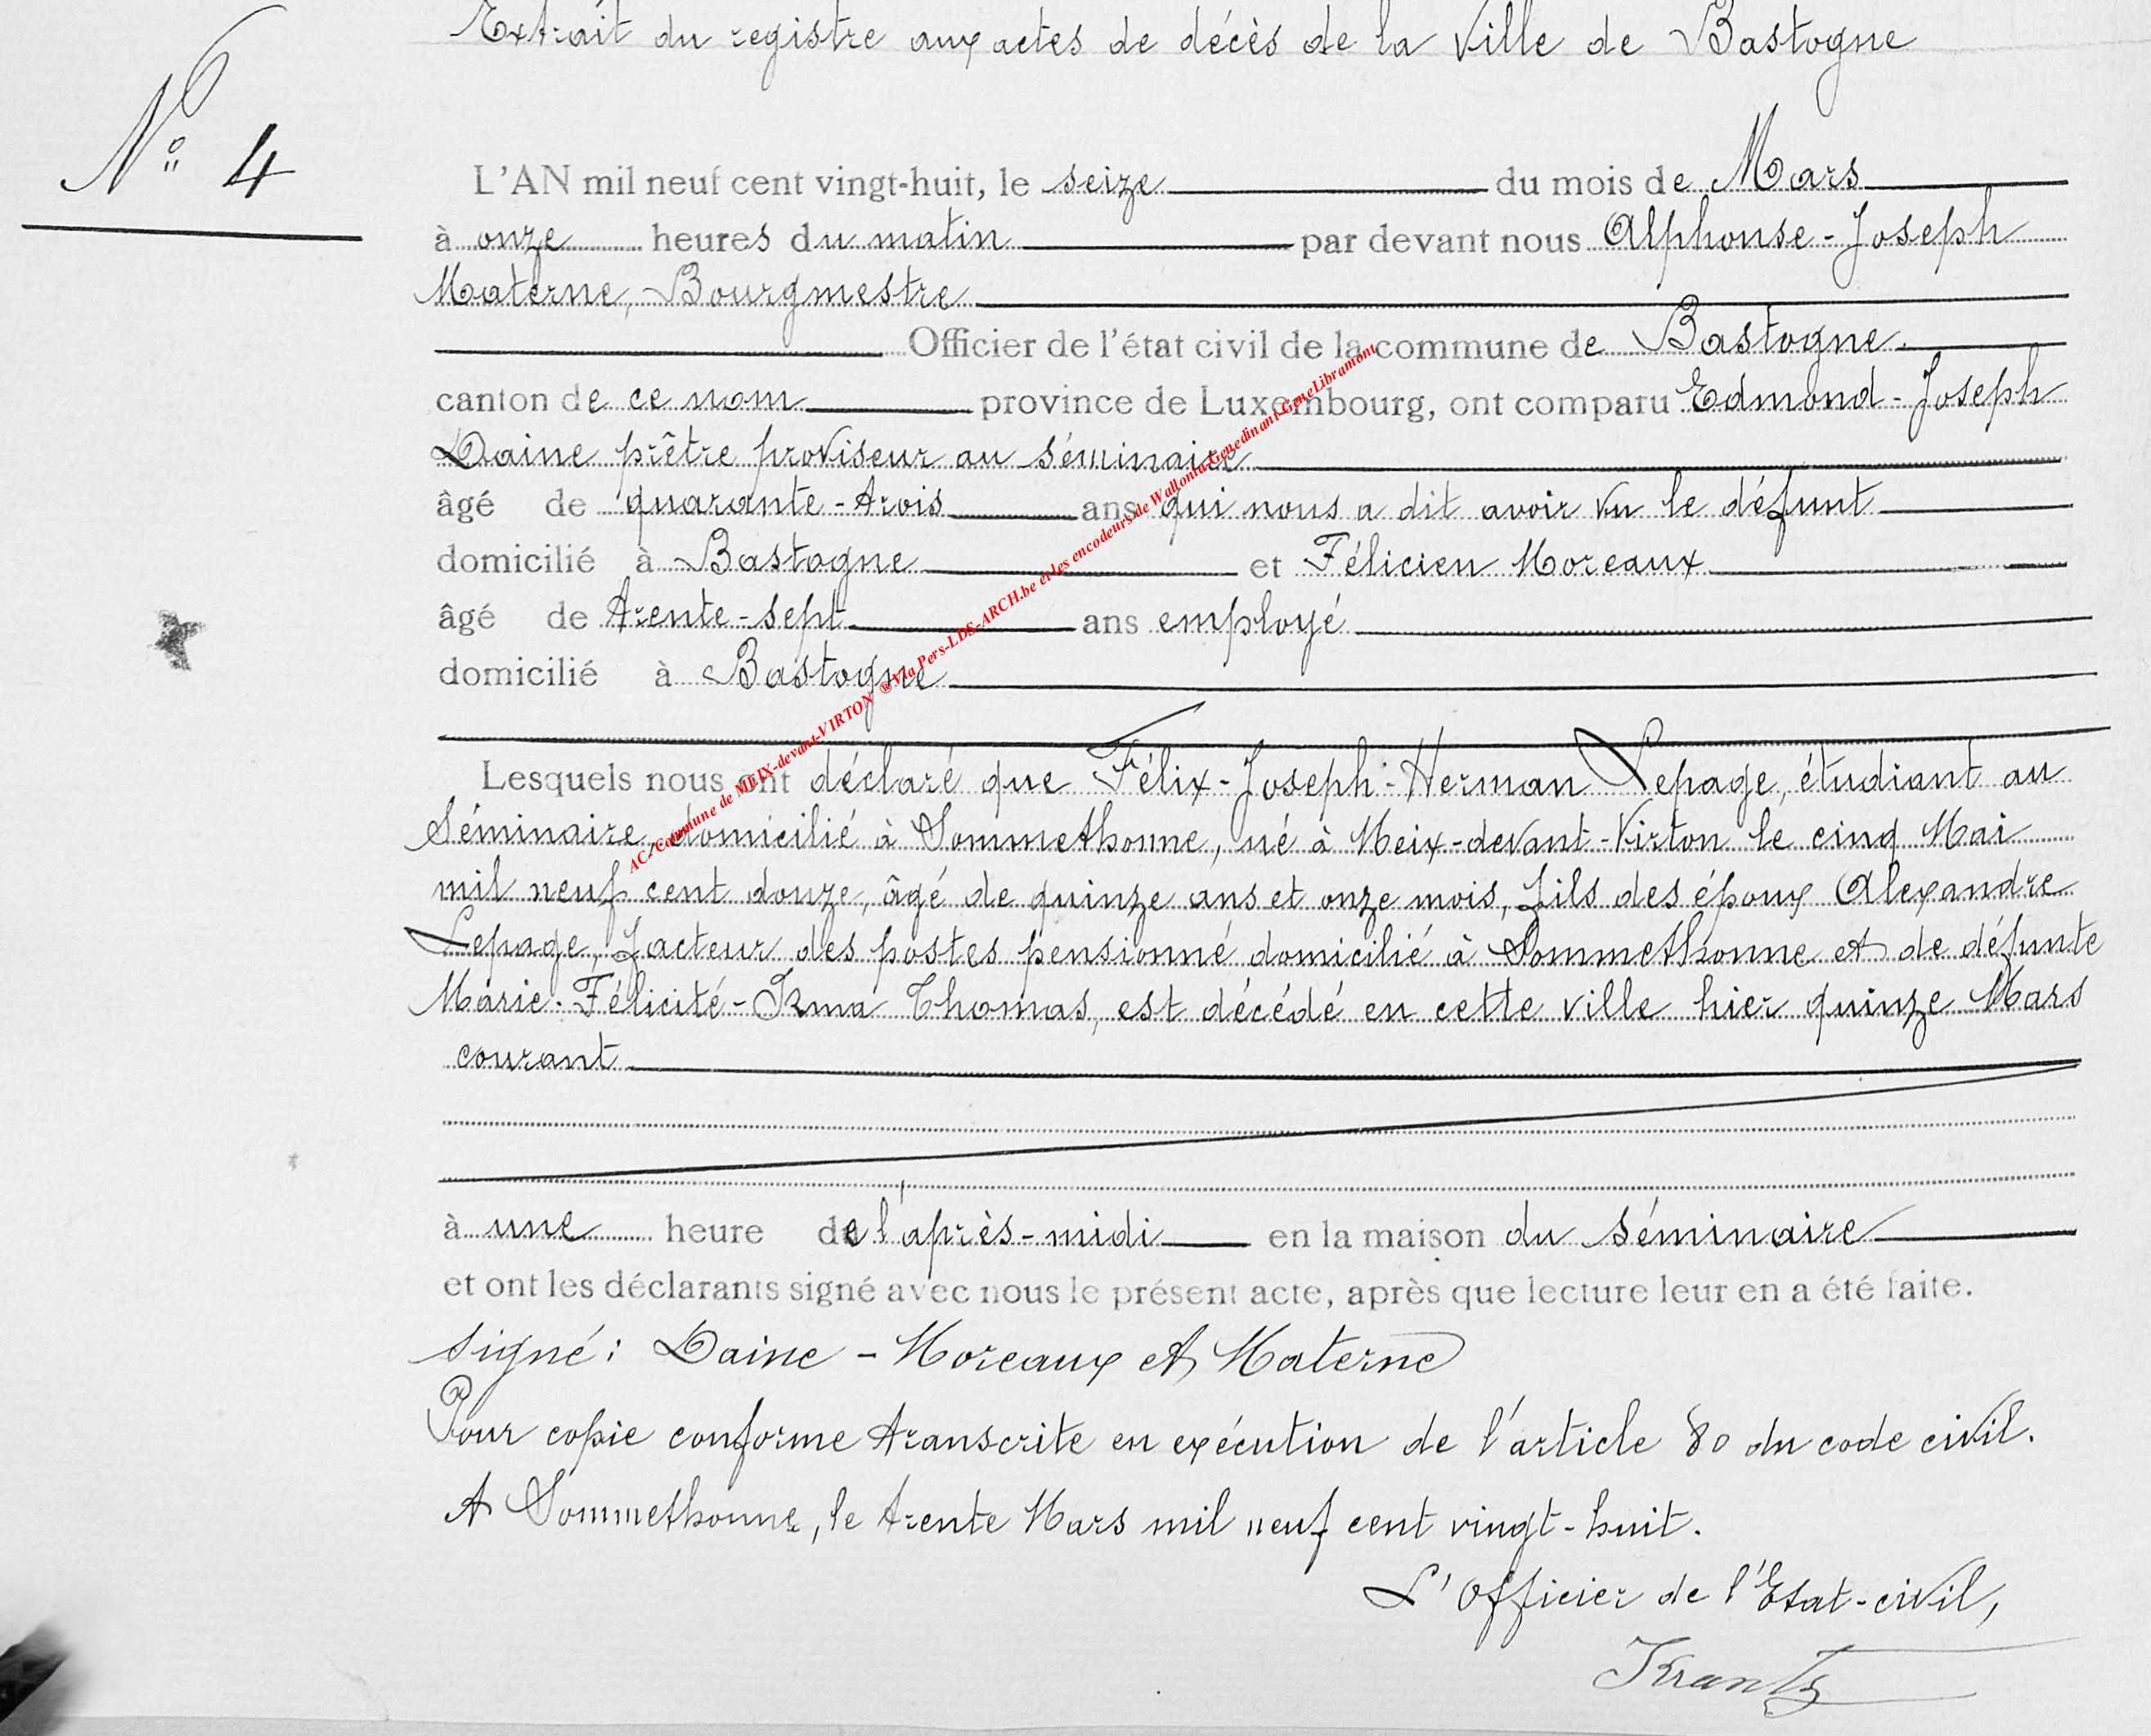 Extrait du registre aux actes de décès de la Ville de Bastogne
N° 4
L'AN mil neuf cent vingt-huit, le seize du mois de Mars
à onze heures du matin par devant nous Alphonse-Joseph
Materne, Bourgmestre
Officier de l'état civil de la commune de Bastogne.
canton de ce nom province de Luxembourg, ont comparu Edmond-Joseph
Daine prêtre proviseur au séminaire
âgé de quarante-trois ans qui nous a dit avoir vu le défunt
domicilié à Bastogne et Félicien Moreaux
âgé de trente-sept ans employé
domicilié à Bastogne
AC/Commune de MEIX-devant-VIRTON ®Via Pers-LDS-ARCH.be et les encodeurs de Wallonia-Genedinant-GeneLibramont
Lesquels nous ont déclaré que Félix-Joseph-Herman Lepage, étudiant au
Séminaire, domicilié à Sommethonne, né à Meix-devant-Virton le cinq Mai
mil neuf cent douze, âgé de quinze ans et onze mois, fils des époux Alexandre
Lepage, facteur des postes pensionné domicilié à Sommethonne et de défunte
Marie-Félicité-Irma Thomas, est décédé en cette ville hier quinze Mars
courant
à une heure de l'après-midi en la maison du séminaire
et ont les déclarants signé avec nous le présent acte, après que lecture leur en a été faite.
signé: Daine - Moreaux et Materne
Pour copie conforme transcrite en exécution de l'article 80 du code civil.
A Sommethonne, le trente Mars mil neuf cent vingt-huit.
L'Officier de l'Etat-civil,
Krantz